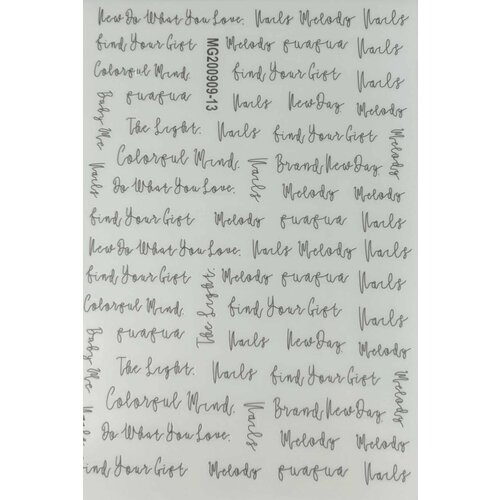 New Do What You Love. Nails Melody Nails
find Your Gift Melody guagua Nails
MG200909-13
Colorful Mind. find Your Gift
Baby Me guagua Nails New Day. Melody
The Light. Nails find Your Gift Melody
Nails Colorful Mind. Nails Brand New Day
Do What You Love. Melody Melody
find Your Gift Melody guagua Nails
New Do What You Love. Nails Melody Nails
find Your Gift The Light. Melody guagua Nails
Colorful Mind. find Your Gift
Baby Me guagua Nails New Day. Melody
The Light. Nails find Your Gift Melody
Nails Colorful Mind. Nails Brand New Day
Do What You Love. Melody Melody
find Your Gift Melody guagua Nails